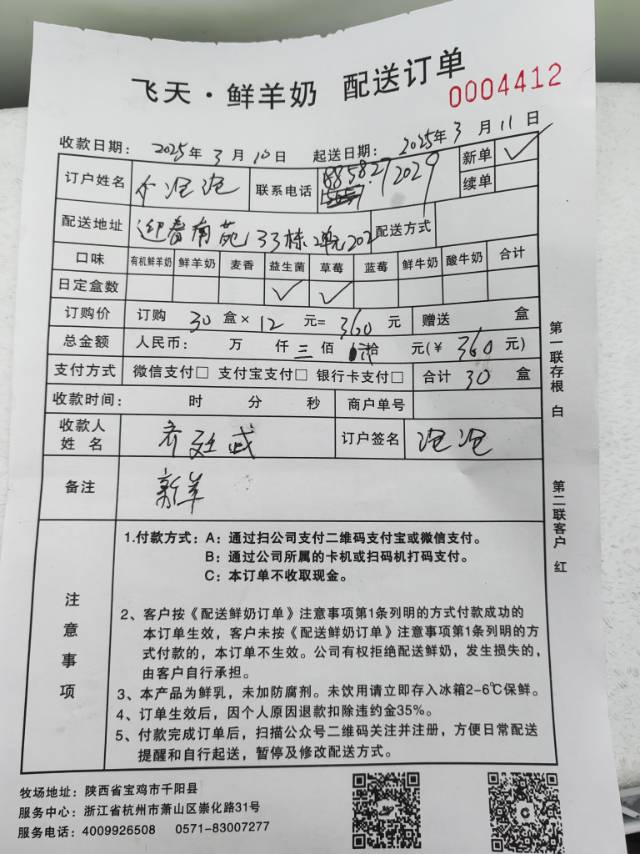 飞天·鲜羊奶 配送订单
0004412
收款日期: 2025年3月10日 起送日期: 2025年3月11日
订户姓名 泡泡 联系电话 新单 ✓
续单
配送地址 迎春南苑33栋2单元202 配送方式
口味 有机鲜羊奶 鲜羊奶 麦香 益生菌 草莓 蓝莓 鲜牛奶 酸牛奶 合计
日定盒数 ✓ ✓
订购价 订购 30 盒× 12 元= 360 元 赠送 盒
总金额 人民币: 万 仟 三 佰 拾 元(¥ 360 元)
支付方式 微信支付□ 支付宝支付□ 银行卡支付□ 合计 30 盒
收款时间: 时 分 秒 商户单号
收款人姓名 订户签名 泡泡
备注 新羊
注意事项
1.付款方式: A: 通过扫公司支付二维码支付宝或微信支付。
B: 通过公司所属的卡机或扫码机打码支付。
C: 本订单不收取现金。
2、客户按《配送鲜奶订单》注意事项第1条列明的方式付款成功的
本订单生效，客户未按《配送鲜奶订单》注意事项第1条列明的方
式付款的，本订单不生效。公司有权拒绝配送鲜奶，发生损失的，
由客户自行承担。
3、本产品为鲜乳，未加防腐剂。未饮用请立即存入冰箱2-6℃保鲜。
4、订单生效后，因个人原因退款扣除违约金35%。
5、付款完成订单后，扫描公众号二维码关注并注册，方便日常配送
提醒和自行起送，暂停及修改配送方式。
第一联存根 白
第二联客户 红
牧场地址: 陕西省宝鸡市千阳县
服务中心: 浙江省杭州市萧山区崇化路31号
服务电话: 4009926508 0571-83007277